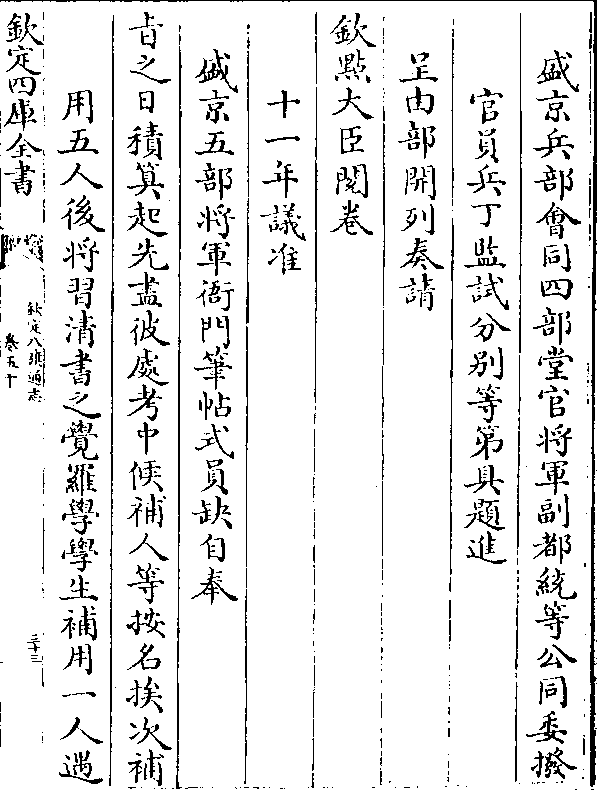 盛京兵部會同四部堂官將軍副都統等公同委撥
官員兵丁監試分别等第具題進
呈由部開列奏請
欽點大臣閲卷
十一年議准
盛京五部将軍衙門筆帖式員缺自奉
旨之日積算起先盡彼處考中候補人等按名挨次補
用五人後将習清書之覺羅學學生補用一人遇
欽定四庫全書
欽定八旗通志
卷五十
三十三